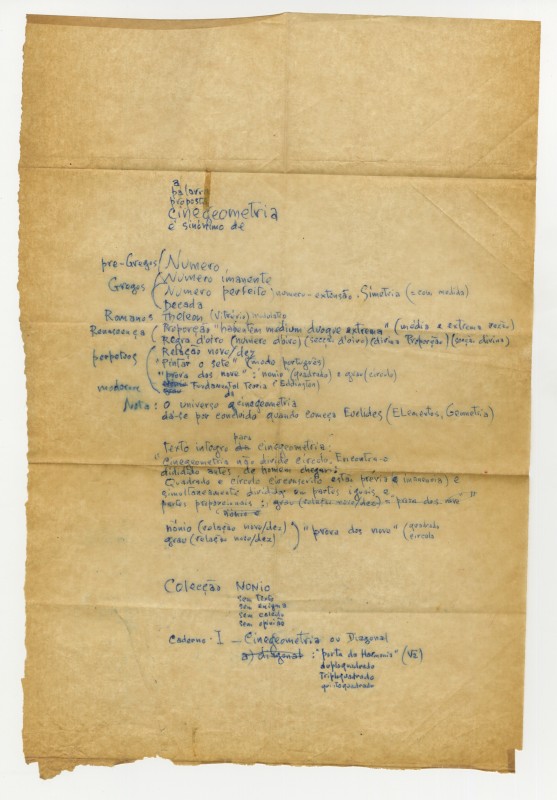 a
palavra
proposta
cinegeometria
é sinónimo de
pre-Gregos Numero
Gregos Numero imanente
Numero perfeito : numero-extensão. Simetria (a com medida)
Decada
Romanos Theleon (Vitruvio)
Renascença Proporção "habentem medium duoque extrema" (média e extrema razão)
Regra d'oiro (numero d'oiro) (secção d'oiro) (divina Proporção) (secção divina)
Relação nove/dez
"Pintar o sete" (modo português)
"prova dos nove" : nónio (quadrado) e grau (circulo)
modernos Fundamental Teoria : Eddington
Nota : O universo da cinegeometria
dá-se por concluido quando começa Euclides (Elementos, Geometria)
texto integro para cinegeometria :
"Cinegeometria não divide circulo. Encontra-o
dividido antes do homem chegar :
Quadrado e circulo circunscrito estão prévia e imanente e
simultaneamente divididos em partes iguais e
partes proporcionais : grau (relação nove/dez) e prova dos nove"
nónio e
nónio (relação nove/dez) "prova dos nove" quadrado
grau (relação nove/dez) circulo
Colecção NONIO
sem texto
sem enigma
sem calculo
sem opinião
Caderno · I — Cinegeometria ou Diagonal
a) diagonal : "porta da Harmonia" (√2)
duploquadrado
triploquadrado